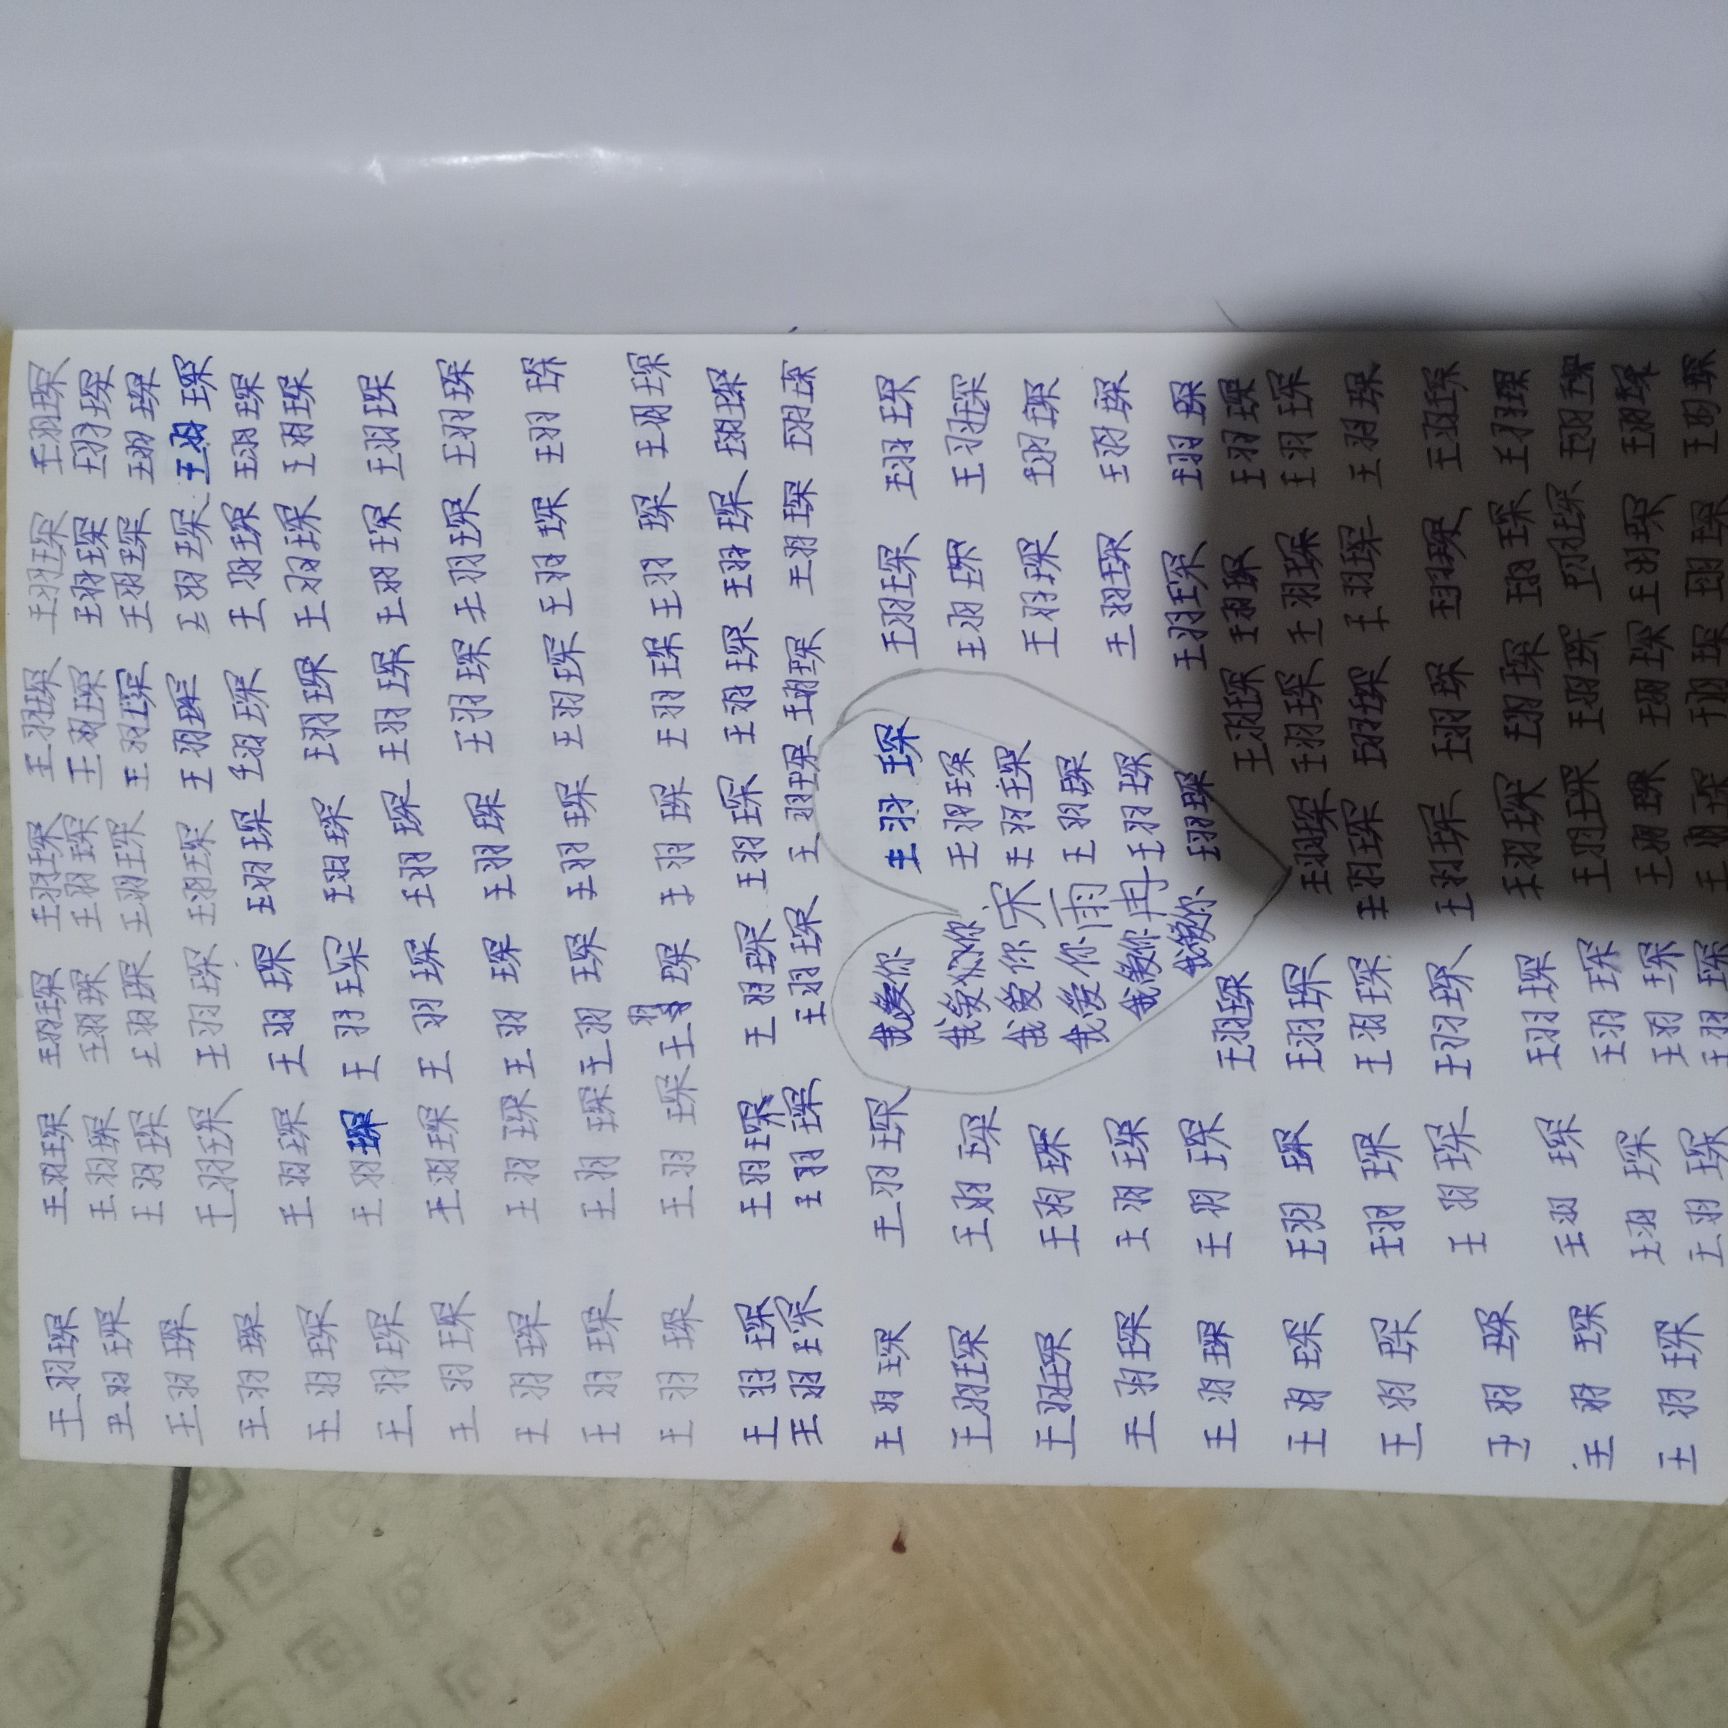 王羽琛 王羽琛 王羽琛 王羽琛 王羽琛 王羽琛 王羽琛
王羽琛 王羽琛 王羽琛 王羽琛 王羽琛 王羽琛 王羽琛
王羽琛 王羽琛 王羽琛 王羽琛 王羽琛 王羽琛 王羽琛
王羽琛 王羽琛 王羽琛 王羽琛 王羽琛 王羽琛 王羽琛
王羽琛 王羽琛 王羽琛 王羽琛 王羽琛 王羽琛 王羽琛
王羽琛 王羽琛 王羽琛 王羽琛 王羽琛 王羽琛 王羽琛
王羽琛 王羽琛 王羽琛 王羽琛 王羽琛 王羽琛 王羽琛
王羽琛 王羽琛 王羽琛 王羽琛 王羽琛 王羽琛 王羽琛
王羽琛 王羽琛 王羽琛 王羽琛 王羽琛 王羽琛 王羽琛
王羽琛 王羽琛 王羽琛 王羽琛 王羽琛 王羽琛 王羽琛
王羽琛 王羽琛 王羽琛 王羽琛 王羽琛 王羽琛 王羽琛
王羽琛 王羽琛 王羽琛 王羽琛 王羽琛 王羽琛 王羽琛
王羽琛 王羽琛 我爱你 王羽琛 王羽琛 王羽琛
王羽琛 王羽琛 我爱你 王羽琛 王羽琛 王羽琛
王羽琛 王羽琛 我爱你 宋 王羽琛 王羽琛 王羽琛
王羽琛 王羽琛 我爱你 雨 王羽琛 王羽琛 王羽琛
王羽琛 王羽琛 我爱你 冉 王羽琛 王羽琛 王羽琛
王羽琛 王羽琛 王羽琛 我爱你 王羽琛 王羽琛 王羽琛 王羽琛
王羽琛 王羽琛 王羽琛 王羽琛 王羽琛 王羽琛 王羽琛
王羽琛 王羽琛 王羽琛 王羽琛 王羽琛 王羽琛 王羽琛
王羽琛 王羽琛 王羽琛 王羽琛 王羽琛 王羽琛 王羽琛
王羽琛 王羽琛 王羽琛 王羽琛 王羽琛 王羽琛 王羽琛
王羽琛 王羽琛 王羽琛 王羽琛 王羽琛 王羽琛
王羽琛 王羽琛 王羽琛 王羽琛 王羽琛
王羽琛 王羽琛 王羽琛 王羽琛 王羽琛